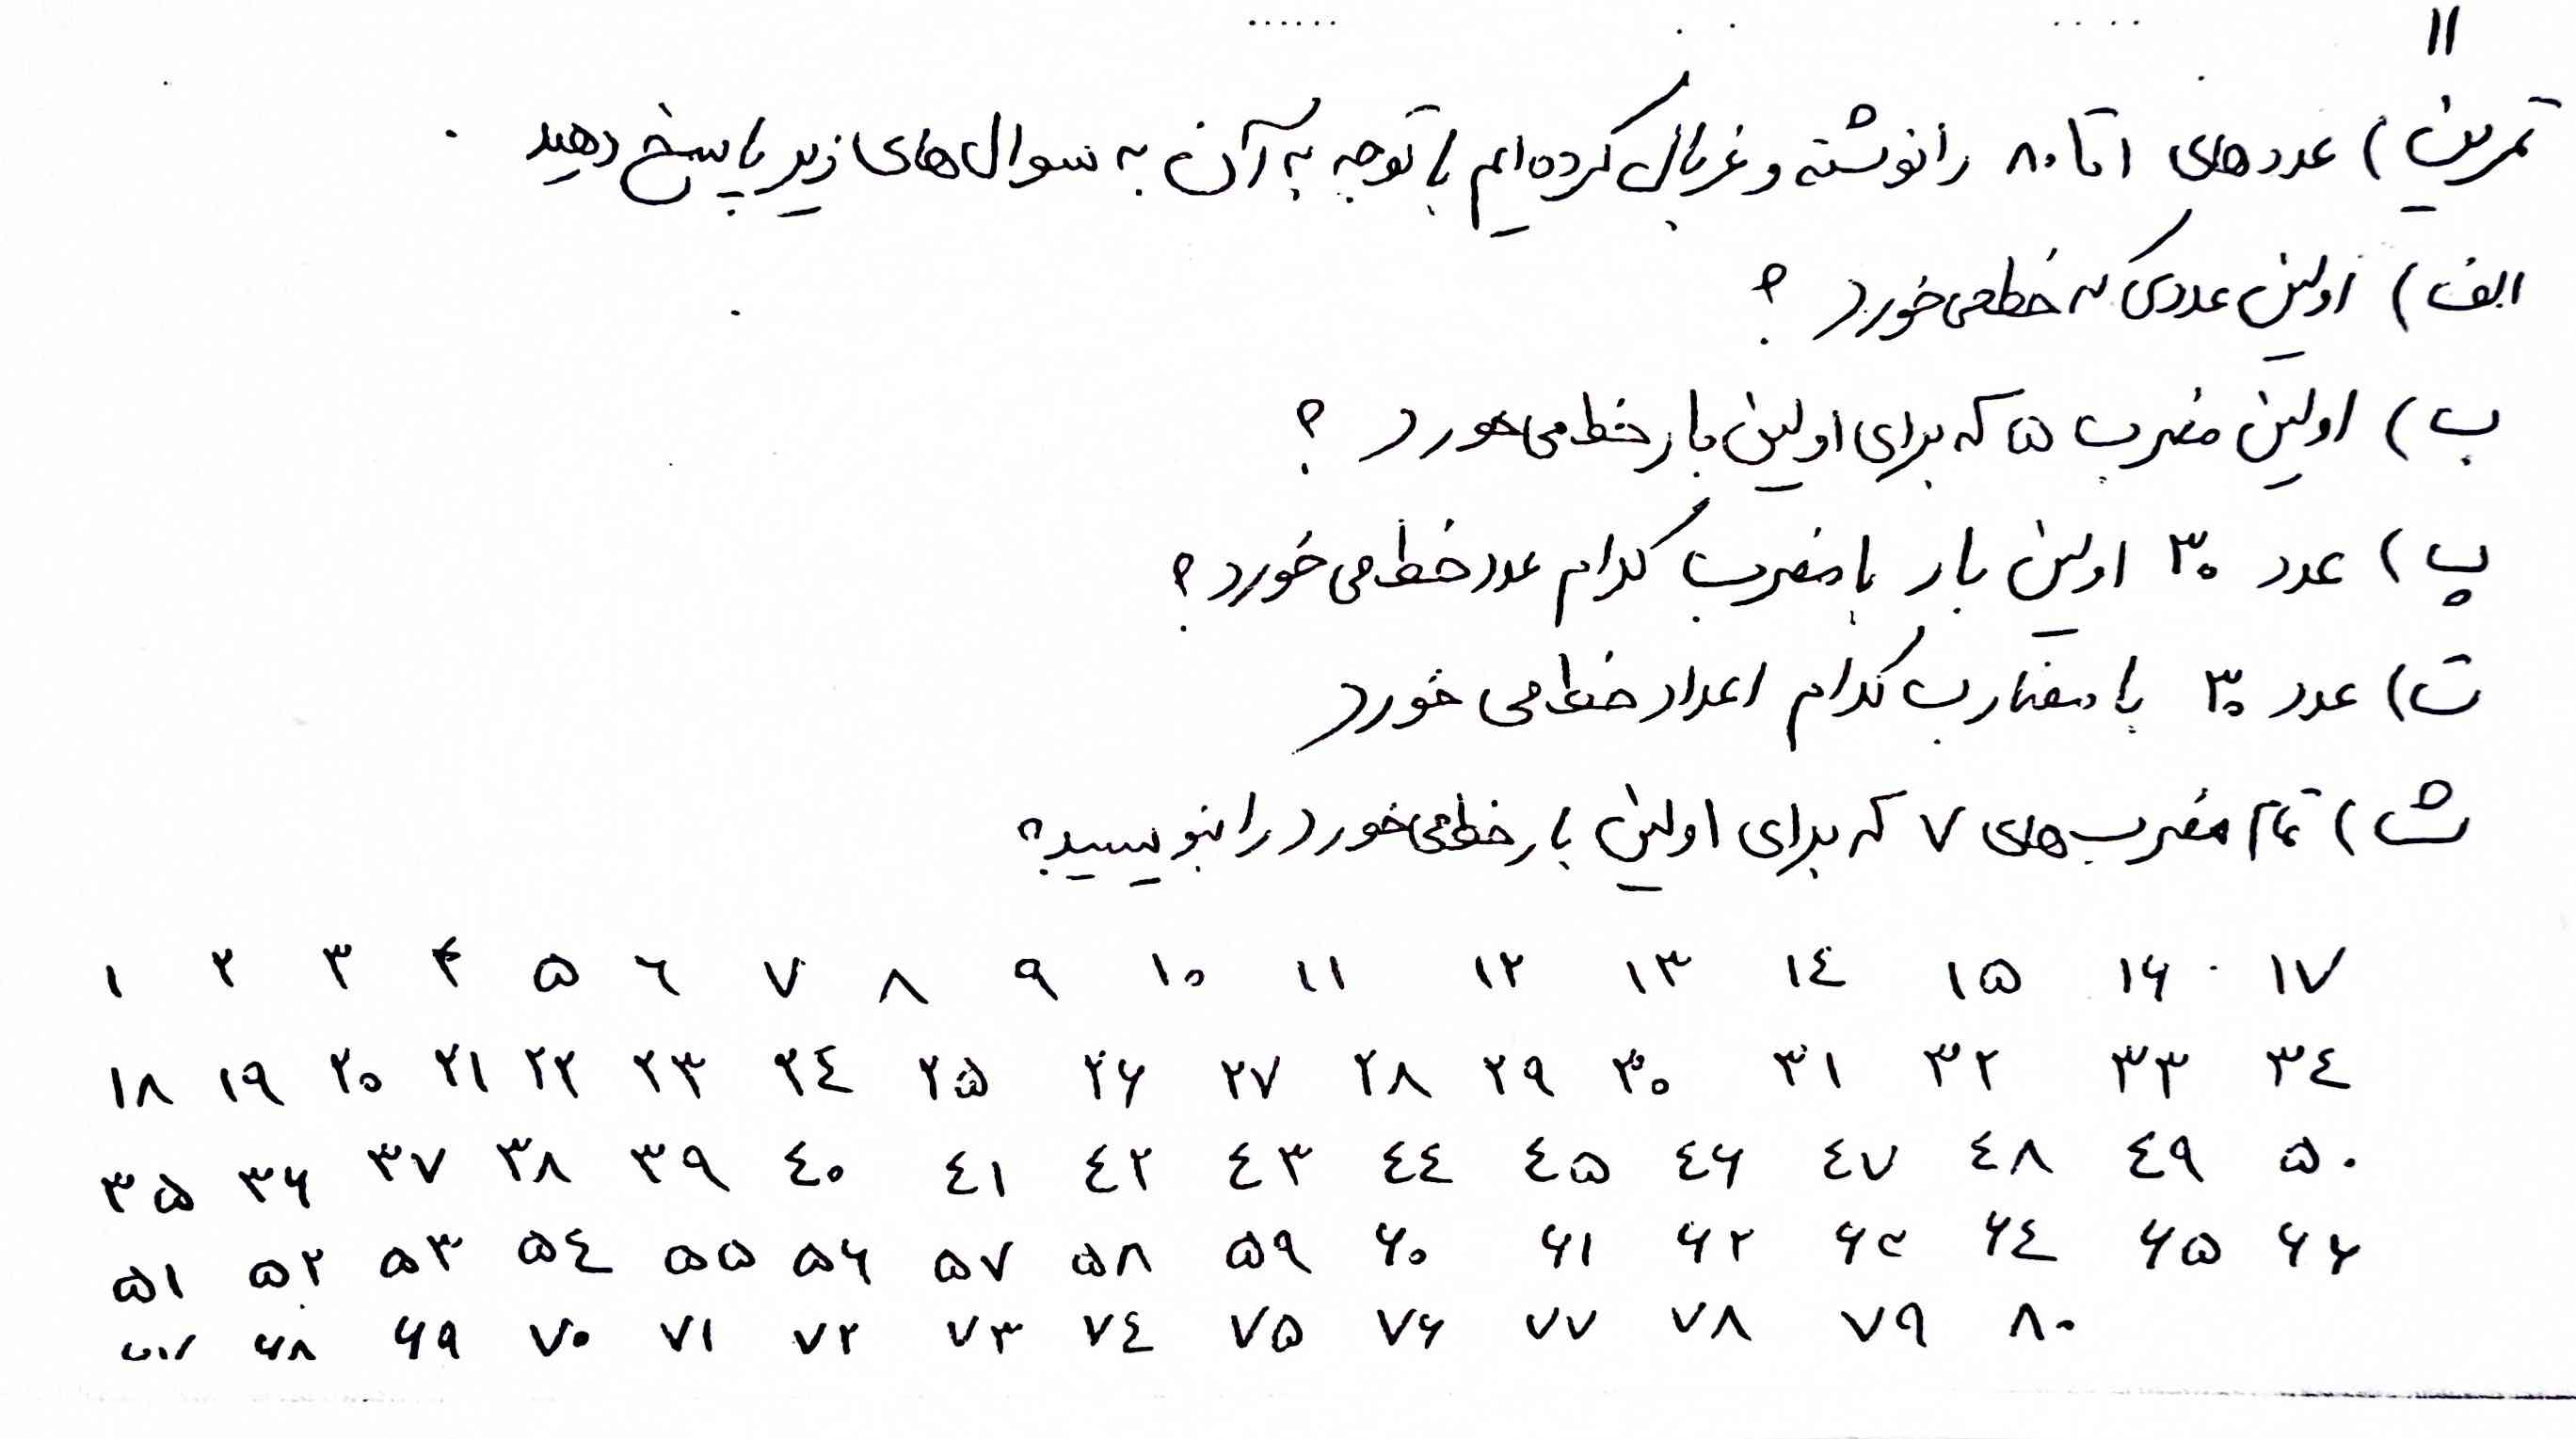 ۱۱
تمرین) عددهای ۱ تا ۸۰ را نوشته و غربال کرده‌ایم با توجه به آن به سوال‌های زیر پاسخ دهید.
الف) اولین عددی که خط می‌خورد ؟
ب) اولین مضرب ۵ که برای اولین بار خط می‌خورد ؟
پ) عدد ۳۰ اولین بار با مضرب کدام عدد خط می‌خورد ؟
ت) عدد ۳۰ با مضارب کدام اعداد خط می‌خورد
ث) تمام مضرب‌های ۷ که برای اولین بار خط می‌خورد را بنویسید؟
۱ ۲ ۳ ۴ ۵ ٦ ۷ ۸ ۹ ۱۰ ۱۱ ۱۲ ۱۳ ۱٤ ۱۵ ۱۶ ۱۷
۱۸ ۱۹ ۲۰ ۲۱ ۲۲ ۲۳ ۲٤ ۲۵ ۲۶ ۲۷ ۲۸ ۲۹ ۳۰ ۳۱ ۳۲ ۳۳ ۳٤
۳۵ ۳۶ ۳۷ ۳۸ ۳۹ ٤۰ ٤۱ ٤۲ ٤۳ ٤٤ ٤۵ ٤۶ ٤۷ ٤۸ ٤۹ ۵۰
۵۱ ۵۲ ۵۳ ۵٤ ۵۵ ۵۶ ۵۷ ۵۸ ۵۹ ۶۰ ۶۱ ۶۲ ۶۳ ۶٤ ۶۵ ۶۶
۶۸ ۶۹ ۷۰ ۷۱ ۷۲ ۷۳ ۷٤ ۷۵ ۷۶ ۷۷ ۷۸ ۷۹ ۸۰